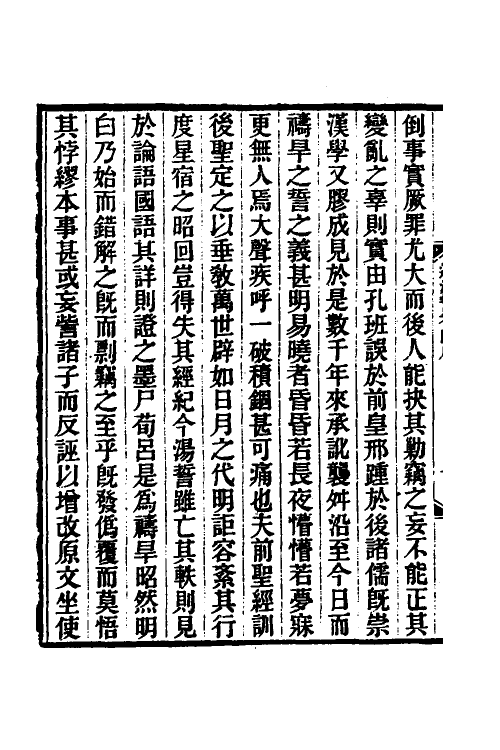 倒事實厥罪尤大而後人能抉其勦竊之妄不能正其
變亂之辜則實由孔班誤於前皇邢踵於後諸儒旣崇
漢學又膠成見於是數千年來承訛襲舛沿至今日而
禱旱之誓之義甚明易曉者昏昏若長夜懵懵若夢寐
更無人焉大聲疾呼一破積錮甚可痛也夫前聖經訓
後聖定之以垂敎萬世辟如日月之代明詎容紊其行
度星宿之昭回豈得失其經紀今湯誓雖亡其軼則見
於論語國語其詳則證之墨尸荀呂是爲禱旱昭然明
白乃始而錯解之旣而剽竊之至乎旣發僞覆而莫悟
其悖繆本事甚或妄訾諸子而反誣以增改原文坐使